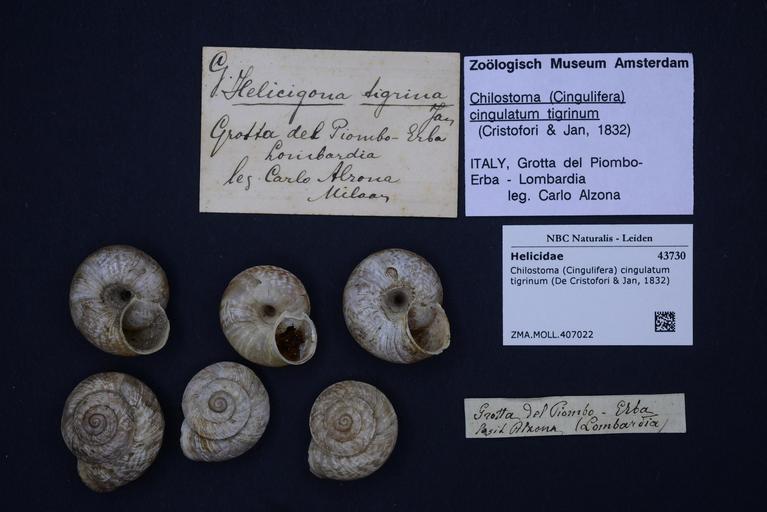 G. Helicigona tigrina
Jan
Grotta del Piombo - Erba
Lombardia
leg. Carlo Alzona
Milaan
Zoölogisch Museum Amsterdam
Chilostoma (Cingulifera)
cingulatum tigrinum
(Cristofori & Jan, 1832)
ITALY, Grotta del Piombo-
Erba - Lombardia
leg. Carlo Alzona
NBC Naturalis - Leiden
Helicidae 43730
Chilostoma (Cingulifera) cingulatum
tigrinum (De Cristofori & Jan, 1832)
ZMA.MOLL.407022
Grotta del Piombo - Erba
Alzona (Lombardia)